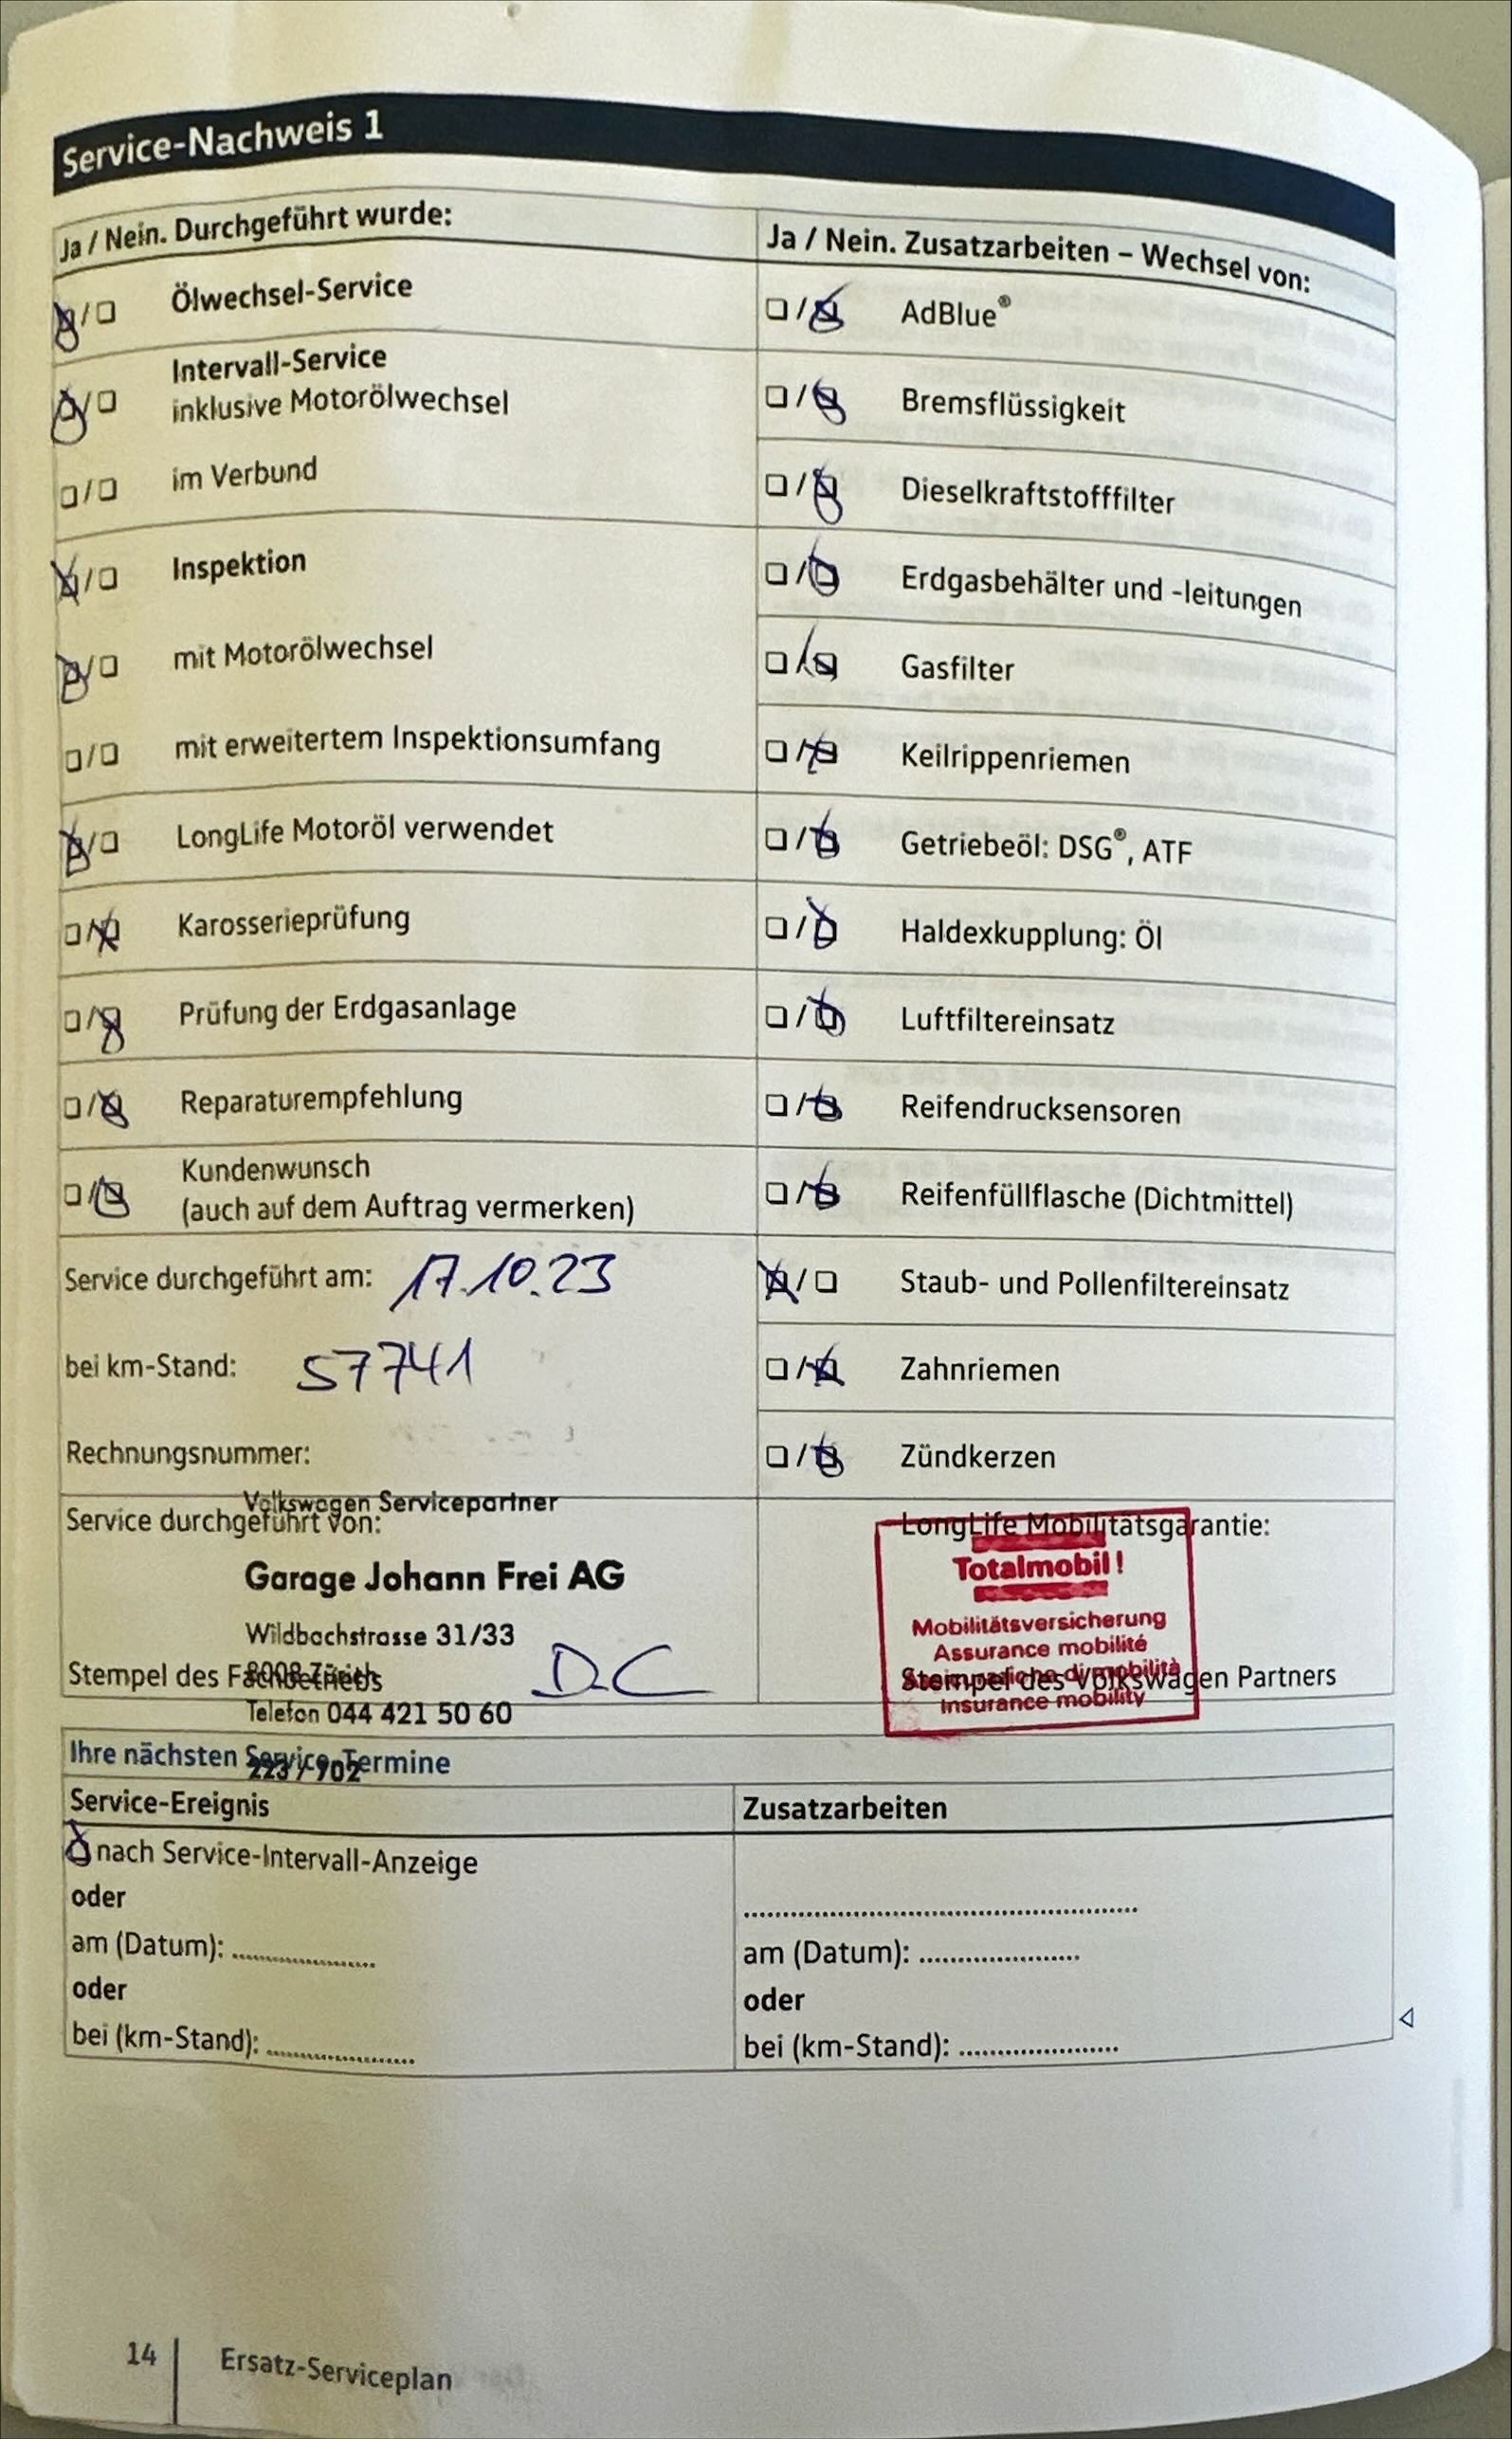 Service-Nachweis 1
Ja / Nein. Durchgeführt wurde:
Ölwechsel-Service
Intervall-Service
inklusive Motorölwechsel
im Verbund
Inspektion
mit Motorölwechsel
mit erweitertem Inspektionsumfang
LongLife Motoröl verwendet
Karosserieprüfung
Prüfung der Erdgasanlage
Reparaturempfehlung
Kundenwunsch
(auch auf dem Auftrag vermerken)
Service durchgeführt am: 17.10.23
bei km-Stand: 57741
Rechnungsnummer:
Ja / Nein. Zusatzarbeiten – Wechsel von:
AdBlue®
Bremsflüssigkeit
Dieselkraftstofffilter
Erdgasbehälter und -leitungen
Gasfilter
Keilrippenriemen
Getriebeöl: DSG®, ATF
Haldexkupplung: Öl
Luftfiltereinsatz
Reifendrucksensoren
Reifenfüllflasche (Dichtmittel)
Staub- und Pollenfiltereinsatz
Zahnriemen
Zündkerzen
Volkswagen Servicepartner
Service durchgeführt von:
Garage Johann Frei AG
Wildbachstrasse 31/33
8008 Zürich
Stempel des Fachbetriebs
DC
Telefon 044 421 50 60
223 / 702
LongLife Mobilitätsgarantie:
Totalmobil!
Mobilitätsversicherung
Assurance mobilité
di mobilità
Insurance mobility
Stempel des Volkswagen Partners
Ihre nächsten Service-Termine
Service-Ereignis
nach Service-Intervall-Anzeige
oder
am (Datum): ....................
oder
bei (km-Stand): ....................
Zusatzarbeiten
......................................................
am (Datum): ......................
oder
bei (km-Stand): ......................
14
Ersatz-Serviceplan